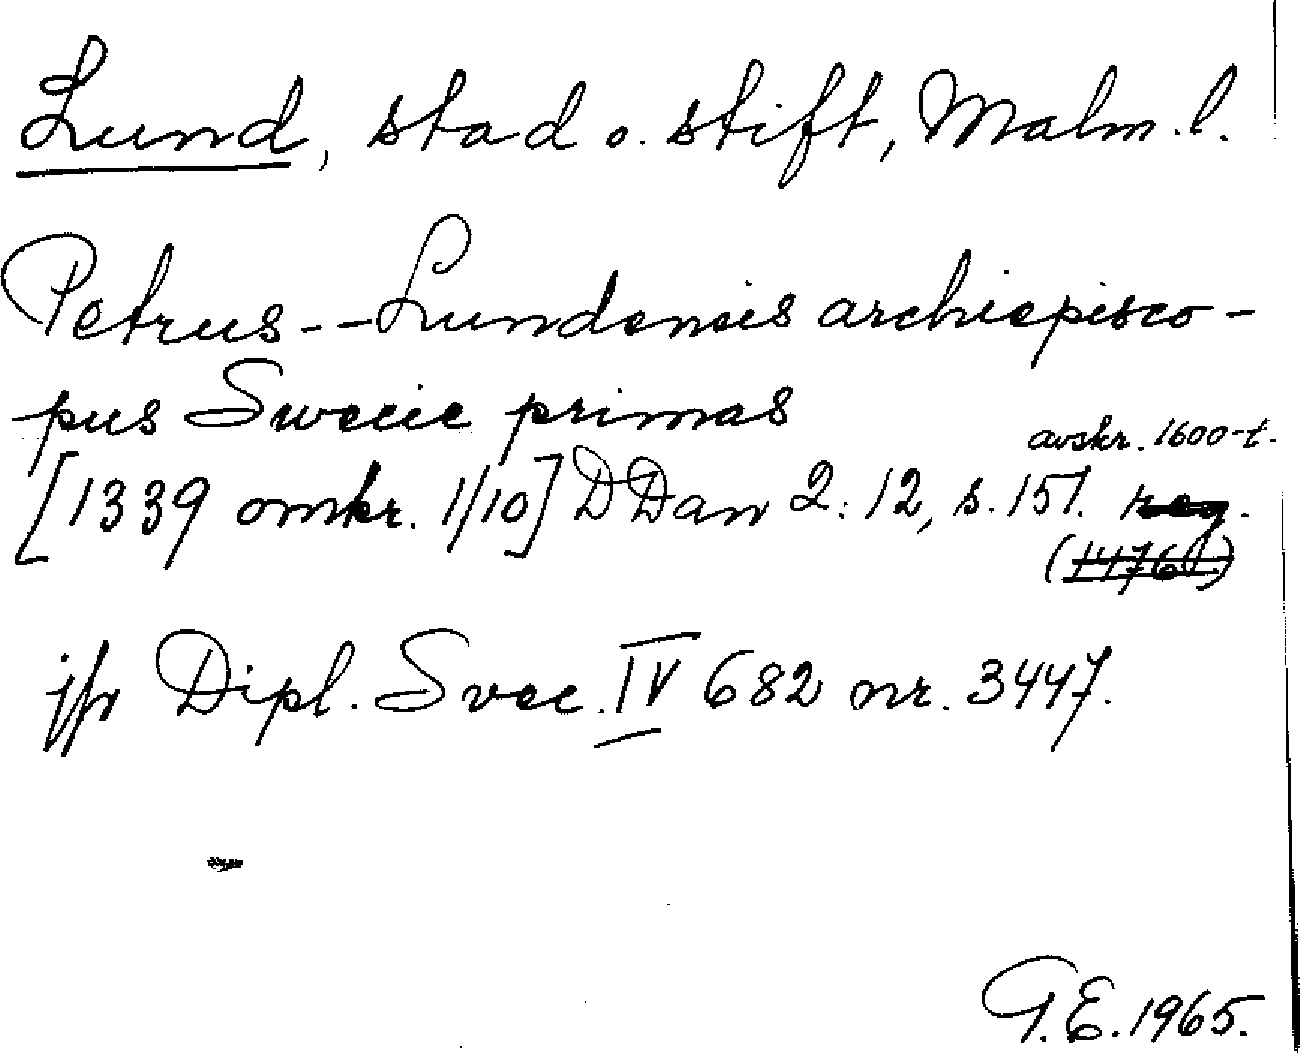 Lund, stad o. stift, Malm. l.
Petrus -- Lundensis archiepisco-
pus Swecie primas
avskr. 1600-t.
[1339 omkr. 1/10] DDan 2: 12, s. 151. reg.
(1476)
jfr Dipl. Svec. IV 682 nr. 3447.
G.E. 1965.